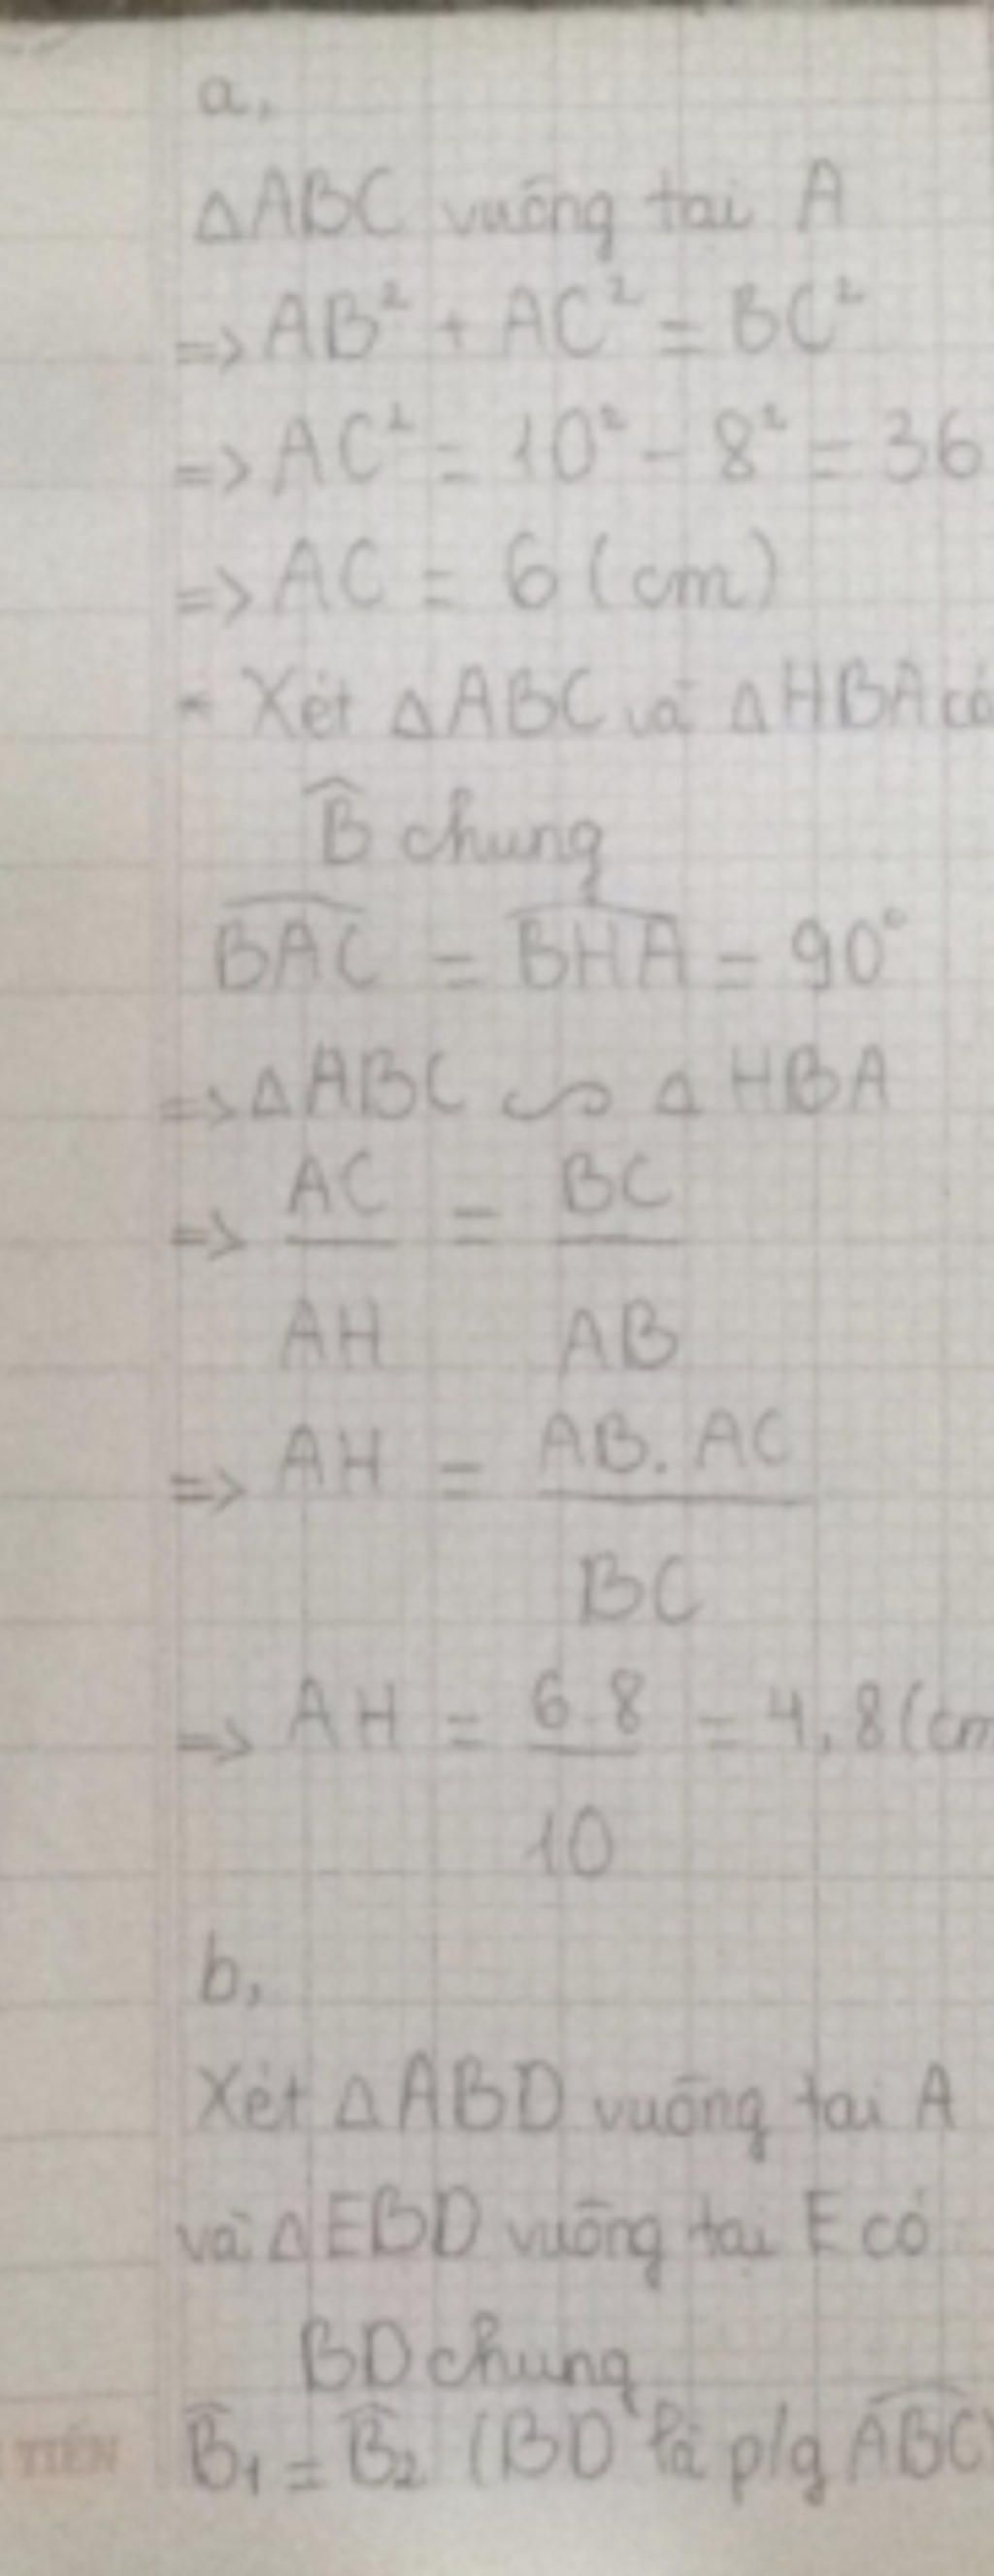 a,
△ABC vuông tại A
=> AB² + AC² = BC²
=> AC² = 10² - 8² = 36
=> AC = 6 (cm)
- Xét △ABC và △HBA có
B̂ chung
BAC = BHA = 90°
=> △ABC ∽ △HBA
=> AC = BC
AH AB
=> AH = AB. AC
BC
=> AH = 6.8 = 4,8 (cm
10
b,
Xét △ABD vuông tại A
và △EBD vuông tại E có
BD chung
B̂₁ = B̂₂ (BD là p/g ABC)
TIẾN